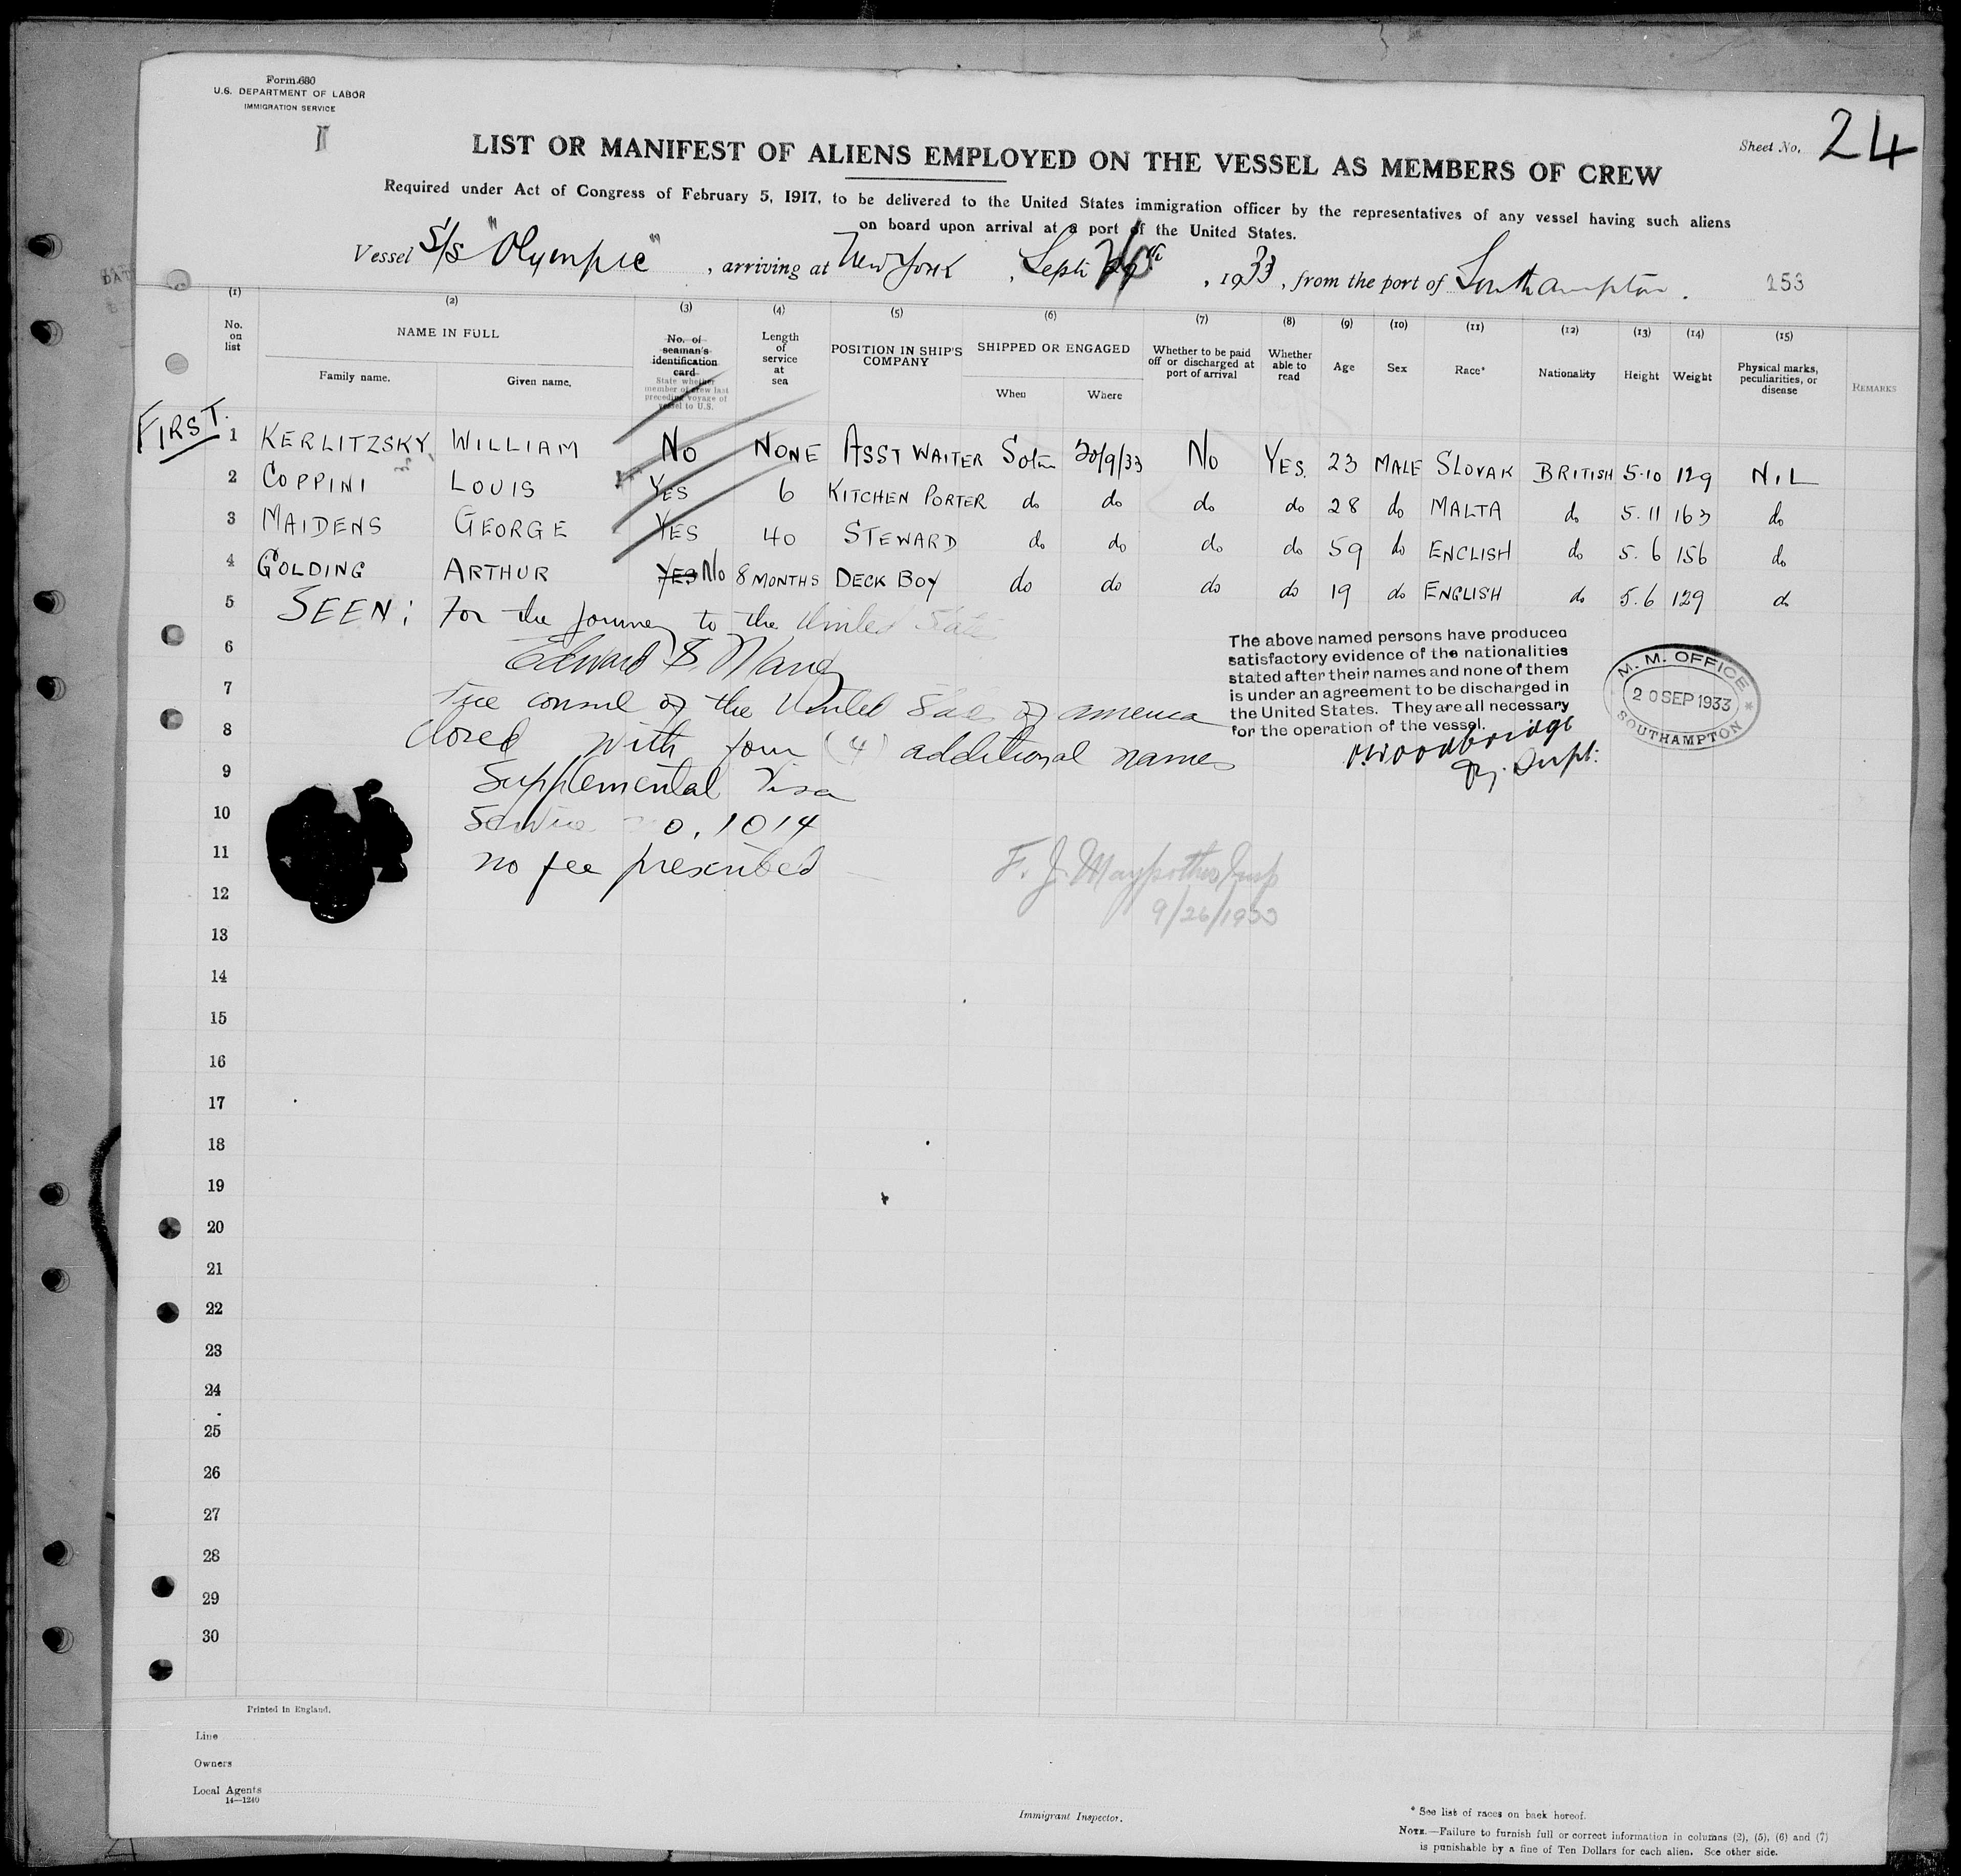 Form 680
U.S. DEPARTMENT OF LABOR
IMMIGRATION SERVICE
LIST OR MANIFEST OF ALIENS EMPLOYED ON THE VESSEL AS MEMBERS OF CREW
Sheet No. 24
Required under Act of Congress of February 5, 1917, to be delivered to the United States immigration officer by the representatives of any vessel having such aliens
on board upon arrival at a port of the United States.
Vessel S/S "Olympic", arriving at New York, Sept 26th, 1933, from the port of Southampton. 153
(1) (2) (3) (4) (5) (6) (7) (8) (9) (10) (11) (12) (13) (14) (15)
No. on list
NAME IN FULL
Family name. Given name.
No. of seaman's identification card
State whether member of crew last preceding voyage of vessel to U.S.
Length of service at sea
POSITION IN SHIP'S COMPANY
SHIPPED OR ENGAGED
When Where
Whether to be paid off or discharged at port of arrival
Whether able to read
Age
Sex
Race*
Nationality
Height
Weight
Physical marks, peculiarities, or disease
REMARKS
FIRST.
1 KERLITZSKY, WILLIAM NO NONE ASST WAITER Soton 20/9/33 NO YES. 23 MALE SLOVAK BRITISH 5.10 129 NIL
2 COPPINI LOUIS YES 6 KITCHEN PORTER do do do do 28 do MALTA do 5.11 163 do
3 MAIDENS GEORGE YES 40 STEWARD do do do do 59 do ENGLISH do 5.6 156 do
4 GOLDING ARTHUR YES NO 8 MONTHS DECK BOY do do do do 19 do ENGLISH do 5.6 129 do
5 SEEN: For the journey to the United States
6 Edward S.
7 Vice consul of the United States of America
8 Closed with four (4) additional names
9 Supplemental Visa
10 Service no. 1014
11 no fee prescribed
The above named persons have produced
satisfactory evidence of the nationalities
stated after their names and none of them
is under an agreement to be discharged in
the United States. They are all necessary
for the operation of the vessel.
Woodbridge
Supt:
M. M. OFFICE
20 SEP 1933
SOUTHAMPTON
F. J. Insp
9/26/1933
12
13
14
15
16
17
18
19
20
21
22
23
24
25
26
27
28
29
30
Printed in England.
Line
Owners
Local Agents
14—1240
Immigrant Inspector.
* See list of races on back hereof.
NOTE.—Failure to furnish full or correct information in columns (2), (5), (6) and (7)
is punishable by a fine of Ten Dollars for each alien. See other side.